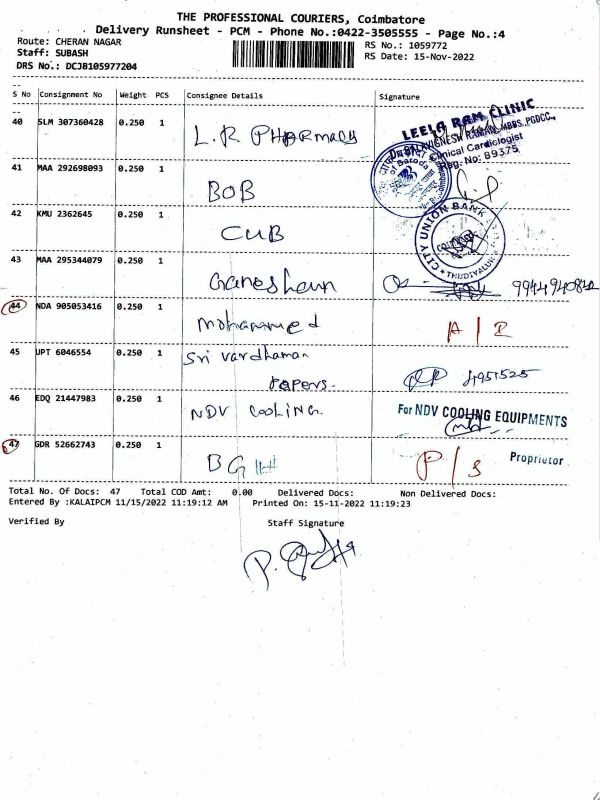 THE PROFESSIONAL COURIERS, Coimbatore
Delivery Runsheet - PCM - Phone No.:0422-3505555 - Page No.:4
Route: CHERAN NAGAR
RS No.: 1059772
Staff: SUBASH
RS Date: 15-Nov-2022
DRS No.: DCJB105977204
S No Consignment No Weight PCS Consignee Details Signature
40 SLM 307360428 0.250 1 L.R PHARMACY
LEELA RAM CLINIC
MBBS, PGDCC.,
Clinical Cardiologist
Reg. No: 89375
41 MAA 292698093 0.250 1 BOB
of Baroda
42 KMU 2362645 0.250 1 CUB
CITY UNION BANK
THUDIYALUR
43 MAA 295344079 0.250 1 Ganeshan
44 NDA 905053416 0.250 1 Mohammed
45 UPT 6046554 0.250 1 Sri Vardhaman
papers.
4951525
46 EDQ 21447983 0.250 1 NDV Cooling.
For NDV COOLING EQUIPMENTS
47 GDR 52662743 0.250 1 P/S
Proprietor
Total No. Of Docs: 47 Total COD Amt: 0.00 Delivered Docs: Non Delivered Docs:
Entered By :KALAIPCM 11/15/2022 11:19:12 AM Printed On: 15-11-2022 11:19:23
Verified By Staff Signature